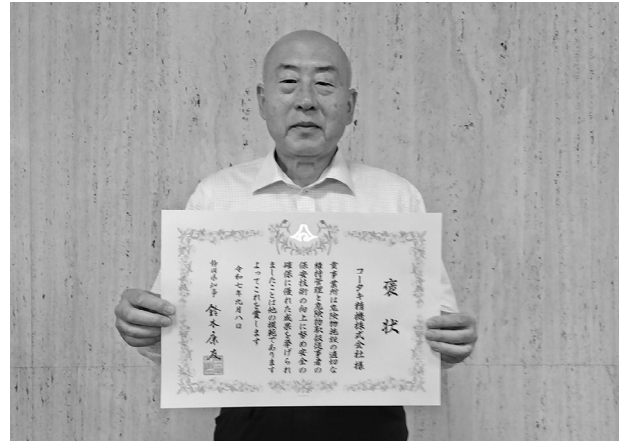 褒状
コータキ精機株式会社様
貴事業所は危険物施設の適切な
維持管理と危険物取扱従事者の
保安技術の向上に努め安全の
確保に優れた成果を挙げられ
ましたことは他の模範であります
よってこれを賞します
令和七年九月八日
静岡県知事 鈴木康友